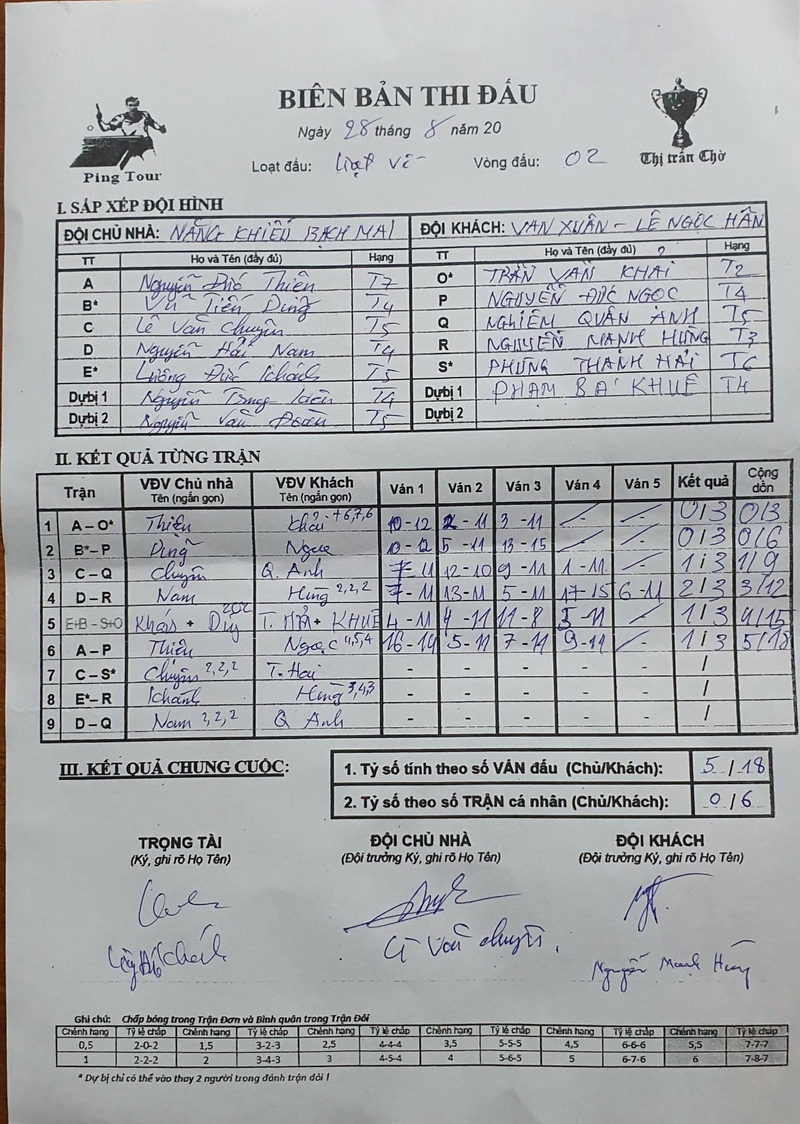 BIÊN BẢN THI ĐẤU
Ngày 28 tháng 8 năm 20
Loạt đấu: Vòng đấu: 02
Ping Tour
Thị trấn Chờ
I. SẮP XẾP ĐỘI HÌNH
ĐỘI CHỦ NHÀ: NĂNG KHIẾU BẠCH MAI ĐỘI KHÁCH: VẠN XUÂN - LÊ NGỌC HÂN
TT Họ và Tên (đầy đủ) Hạng TT Họ và Tên (đầy đủ) Hạng
A Nguyễn Đức Thiên T7 O* TRẦN VĂN KHẢI T2
B* Vũ Tiến Dũng T4 P NGUYỄN ĐỨC NGỌC T4
C Lê Văn Chuyên T5 Q NGHIÊM QUÂN ANH T5
D Nguyễn Hải Nam T4 R NGUYỄN MẠNH HÙNG T3
E* Lương Đức Khánh T5 S* PHÙNG THANH HẢI T6
Dự bị 1 Nguyễn Trung T4 Dự bị 1 PHẠM BÁ KHUÊ T4
Dự bị 2 Nguyễn Văn Đoàn T5 Dự bị 2
II. KẾT QUẢ TỪNG TRẬN
Trận VĐV Chủ nhà Tên (ngắn gọn) VĐV Khách Tên (ngắn gọn) Ván 1 Ván 2 Ván 3 Ván 4 Ván 5 Kết quả Cộng dồn
1 A – O* Thiên Khải +6,7,6 10-12 2-11 3-11 - - 0/3 0/3
2 B* – P Dũng Ngọc 10-12 5-11 13-15 - - 0/3 0/6
3 C – Q Chuyên Q. Anh 7-11 12-10 9-11 1-11 - 1/3 1/9
4 D – R Nam Hùng 2,2,2 7-11 13-11 5-11 17-15 6-11 2/3 3/12
5 E+B – S+O Khánh + Dũng 202 T. HẢI + KHUÊ 4-11 4-11 11-8 5-11 - 1/3 4/15
6 A – P Thiên Ngọc 4,5,4 16-14 5-11 7-11 9-11 - 1/3 5/18
7 C – S* Chuyên 2,2,2 T. Hải - - - - - /
8 E* – R Khánh Hùng 3,4,3 - - - - - /
9 D – Q Nam 2,2,2 Q Anh - - - - - /
III. KẾT QUẢ CHUNG CUỘC:
1. Tỷ số tính theo số VÁN đấu (Chủ/Khách): 5/18
2. Tỷ số theo số TRẬN cá nhân (Chủ/Khách): 0/6
TRỌNG TÀI ĐỘI CHỦ NHÀ ĐỘI KHÁCH
(Ký, ghi rõ Họ Tên) (Đội trưởng Ký, ghi rõ Họ Tên) (Đội trưởng Ký, ghi rõ Họ Tên)
Lê Văn Chuyên
Nguyễn Mạnh Hùng
Ghi chú: Chấp bóng trong Trận Đơn và Bình quân trong Trận Đôi
Chênh hạng Tỷ lệ chấp Chênh hạng Tỷ lệ chấp Chênh hạng Tỷ lệ chấp Chênh hạng Tỷ lệ chấp Chênh hạng Tỷ lệ chấp Chênh hạng Tỷ lệ chấp
0,5 2-0-2 1,5 3-2-3 2,5 4-4-4 3,5 5-5-5 4,5 6-6-6 5,5 7-7-7
1 2-2-2 2 3-4-3 3 4-5-4 4 5-6-5 5 6-7-6 6 7-8-7
* Dự bị chỉ có thể vào thay 2 người trong đánh trận đôi !